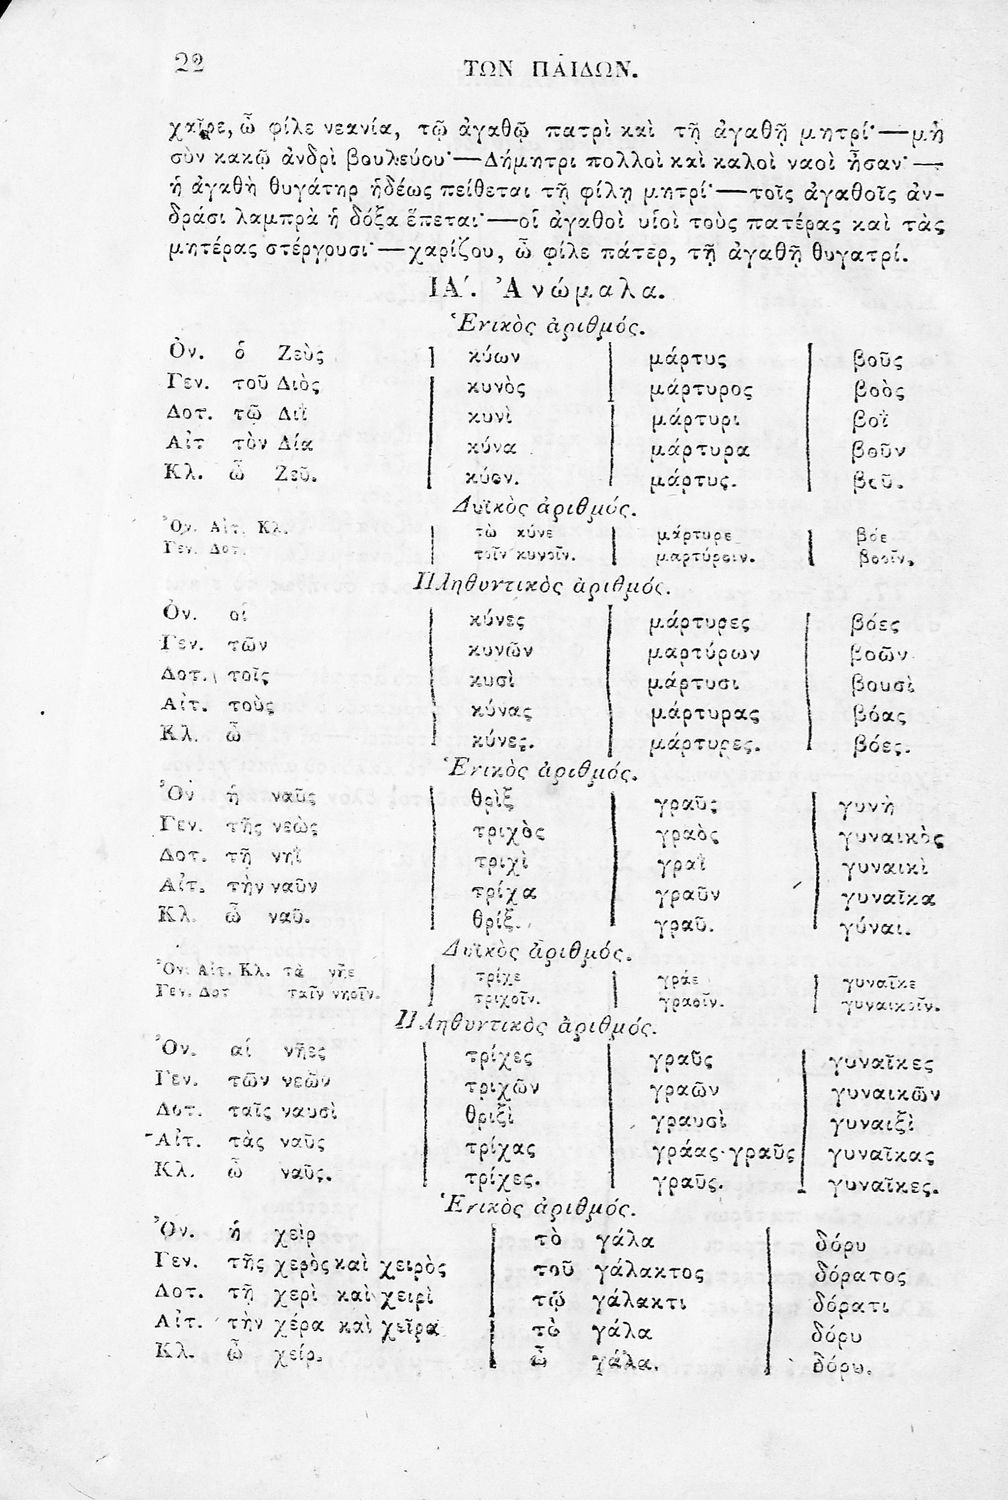 22 ΤΩΝ ΠΑΙΔΩΝ.
χαῖρε, ὦ φίλε νεανία, τῷ ἀγαθῷ πατρὶ καὶ τῇ ἀγαθῇ μητρί·—μὴ
σὺν κακῷ ἀνδρὶ βουλεύου·—Δήμητρι πολλοὶ καὶ καλοὶ ναοὶ ἦσαν·—
ἡ ἀγαθὴ θυγάτηρ ἡδέως πείθεται τῇ φίλῃ μητρί·—τοῖς ἀγαθοῖς ἀν-
δράσι λαμπρὰ ἡ δόξα ἕπεται·—οἱ ἀγαθοὶ υἱοὶ τοὺς πατέρας καὶ τὰς
μητέρας στέργουσι·—χαρίζου, ὦ φίλε πάτερ, τῇ ἀγαθῇ θυγατρί.
ΙΑ΄. Ἀνώμαλα.
Ἑνικὸς ἀριθμός.
Ὀν. ὁ Ζεὺς | κύων | μάρτυς | βοῦς
Γεν. τοῦ Διὸς | κυνὸς | μάρτυρος | βοὸς
Δοτ. τῷ Διῒ | κυνὶ | μάρτυρι | βοῒ
Αἰτ τὸν Δία | κύνα | μάρτυρα | βοῦν
Κλ. ὦ Ζεῦ. | κύον. | μάρτυς. | βοῦ.
Δυϊκὸς ἀριθμός.
Ὀν. Αἰτ. Κλ. | τὼ κύνε | μάρτυρε | βόε
Γεν. Δοτ. | τοῖν κυνοῖν. | μαρτύροιν. | βοοῖν.
Πληθυντικὸς ἀριθμός.
Ὀν. οἱ | κύνες | μάρτυρες | βόες
Γεν. τῶν | κυνῶν | μαρτύρων | βοῶν
Δοτ. τοῖς | κυσὶ | μάρτυσι | βουσὶ
Αἰτ. τοὺς | κύνας | μάρτυρας | βόας
Κλ. ὦ | κύνες. | μάρτυρες. | βόες.
Ἑνικὸς ἀριθμός.
Ὀν ἡ ναῦς | θρὶξ | γραῦς | γυνὴ
Γεν. τῆς νεὼς | τριχὸς | γραὸς | γυναικὸς
Δοτ. τῇ νηῒ | τριχὶ | γραῒ | γυναικὶ
Αἰτ. τὴν ναῦν | τρίχα | γραῦν | γυναῖκα
Κλ. ὦ ναῦ. | θρίξ. | γραῦ. | γύναι.
Δυϊκὸς ἀριθμός.
Ὀν. Αἰτ. Κλ. τὰ νῆε | τρίχε | γρᾶε | γυναῖκε
Γεν. Δοτ ταῖν νηοῖν. | τριχοῖν. | γραοῖν. | γυναικοῖν.
Πληθυντικὸς ἀριθμός.
Ὀν. αἱ νῆες | τρίχες | γραῦς | γυναῖκες
Γεν. τῶν νεῶν | τριχῶν | γραῶν | γυναικῶν
Δοτ. ταῖς ναυσὶ | θριξὶ | γραυσὶ | γυναιξὶ
Αἰτ. τὰς ναῦς | τρίχας | γράας·γραῦς | γυναῖκας
Κλ. ὦ ναῦς. | τρίχες. | γραῦς. | γυναῖκες.
Ἑνικὸς ἀριθμός.
Ὀν. ἡ χεὶρ | τὸ γάλα | δόρυ
Γεν. τῆς χερὸς καὶ χειρὸς | τοῦ γάλακτος | δόρατος
Δοτ. τῇ χερὶ καὶ χειρὶ | τῷ γάλακτι | δόρατι
Αἰτ. τὴν χέρα καὶ χεῖρα | τὸ γάλα | δόρυ
Κλ. ὦ χείρ. | ὦ γάλα. | δόρυ.